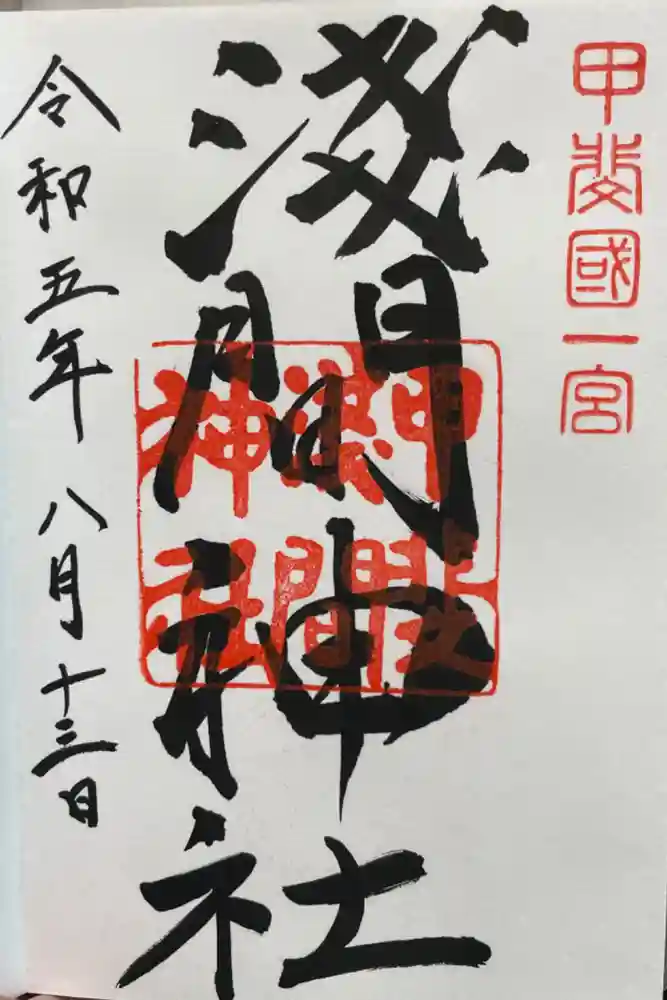 甲斐國一宮
淺間神社
甲斐
淺間
神社
令和五年八月十三日